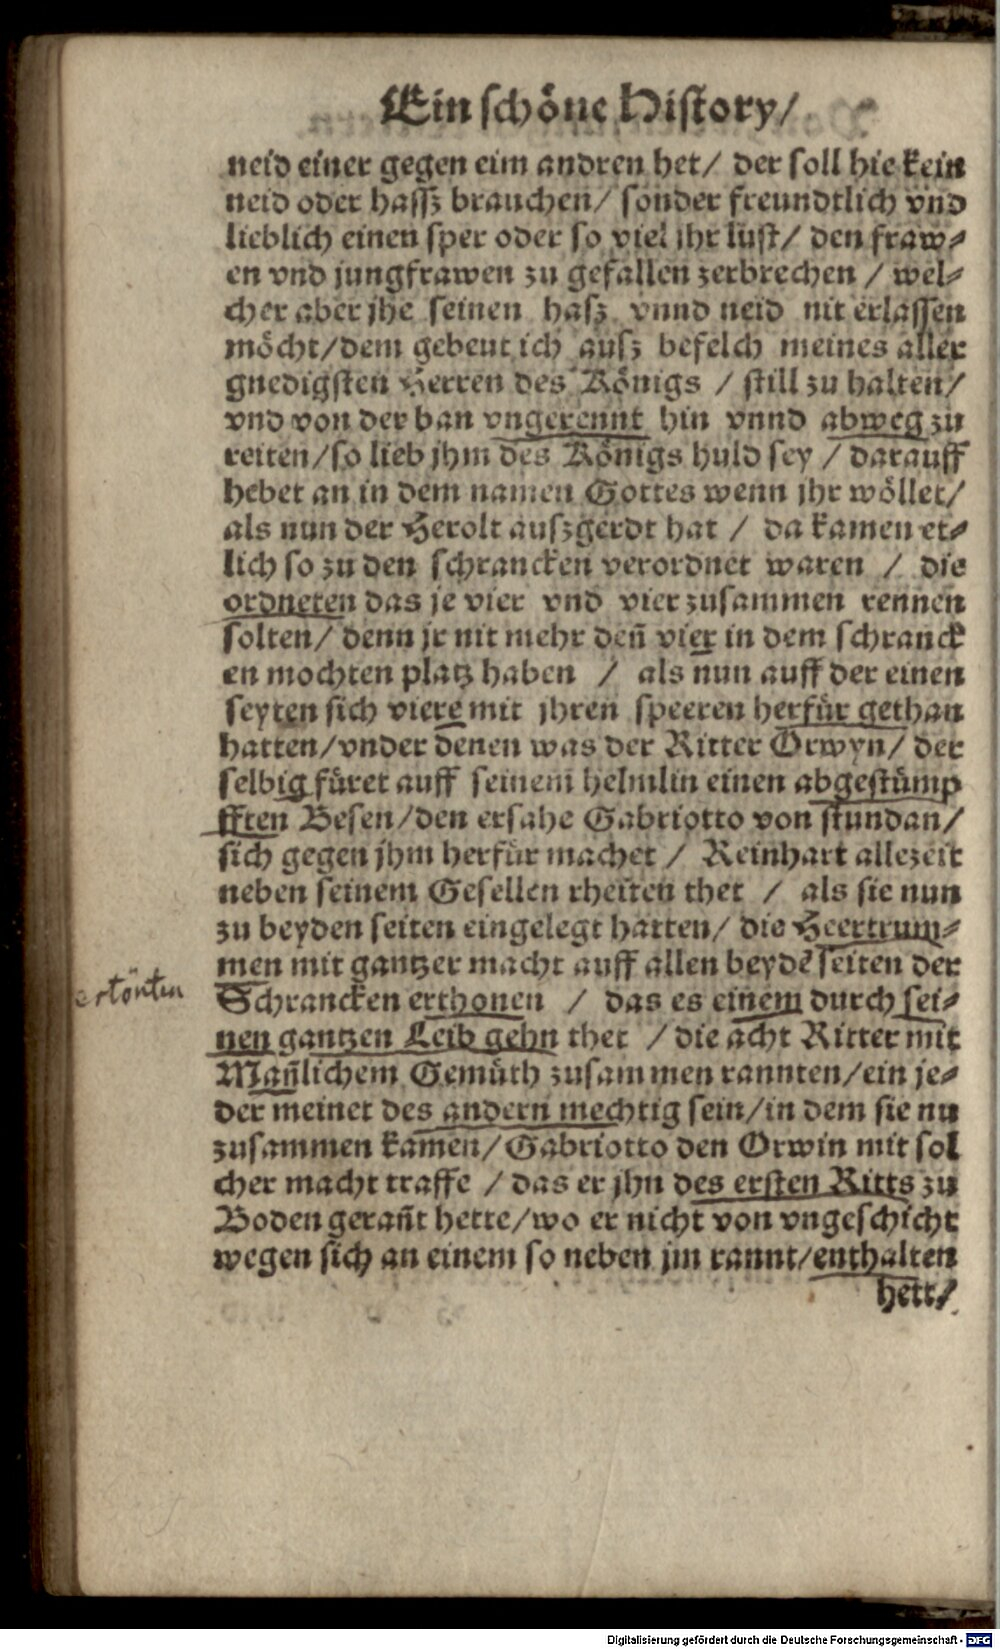 Ein schöne History/
neid einer gegen eim andren het/ der soll hie kein
neid oder hassz brauchen/ sonder freundtlich vnd
lieblich einen sper oder so viel jhr lust/ den fraw⸗
en vnd jungfrawen zu gefallen zerbrechen / wel⸗
cher aber jhe seinen hasz vnnd neid nit erlassen
möcht/dem gebeut ich ausz befelch meines aller
gnedigsten Herren des Königs / still zu halten/
vnd von der ban vngerennt hin vnnd abweg zu
reiten/so lieb jhm des Königs huld sey / darauff
hebet an in dem namen Gottes wenn jhr wöllet/
als nun der Herolt auszgerdt hat / da kamen et⸗
lich so zu den schrancken verordnet waren / die
ordneten das je vier vnd vier zusammen rennen
solten/ denn jr nit mehr deñ vier in dem schranck
en mochten platz haben / als nun auff der einen
seyten sich viere mit jhren speeren herfür gethan
hatten/vnder denen was der Ritter Orwyn/ der
selbig füret auff seinem helmlin einen abgestümp
fften Besen/den ersahe Gabriotto von stundan/
sich gegen jhm herfür machet / Reinhart allezeit
neben seinem Gesellen rheiten thet / als sie nun
zu beyden seiten eingelegt hatten/ die Heertrum⸗
men mit gantzer macht auff allen beydẽ seiten der
ertönten
Schrancken erthonen / das es einem durch sei⸗
nen gantzen Leib gehn thet / die acht Ritter mit
Mañlichem Gemüth zusammen rannten/ein je⸗
der meinet des andern mechtig sein/in dem sie nu
zusammen kamen/Gabriotto den Orwin mit sol
cher macht traffe / das er jhn des ersten Ritts zu
Boden gerañt hette/wo er nicht von vngeschicht
wegen sich an einem so neben jm rannt/enthalten
hett/
Digitalisierung gefördert durch die Deutsche Forschungsgemeinschaft - DFG